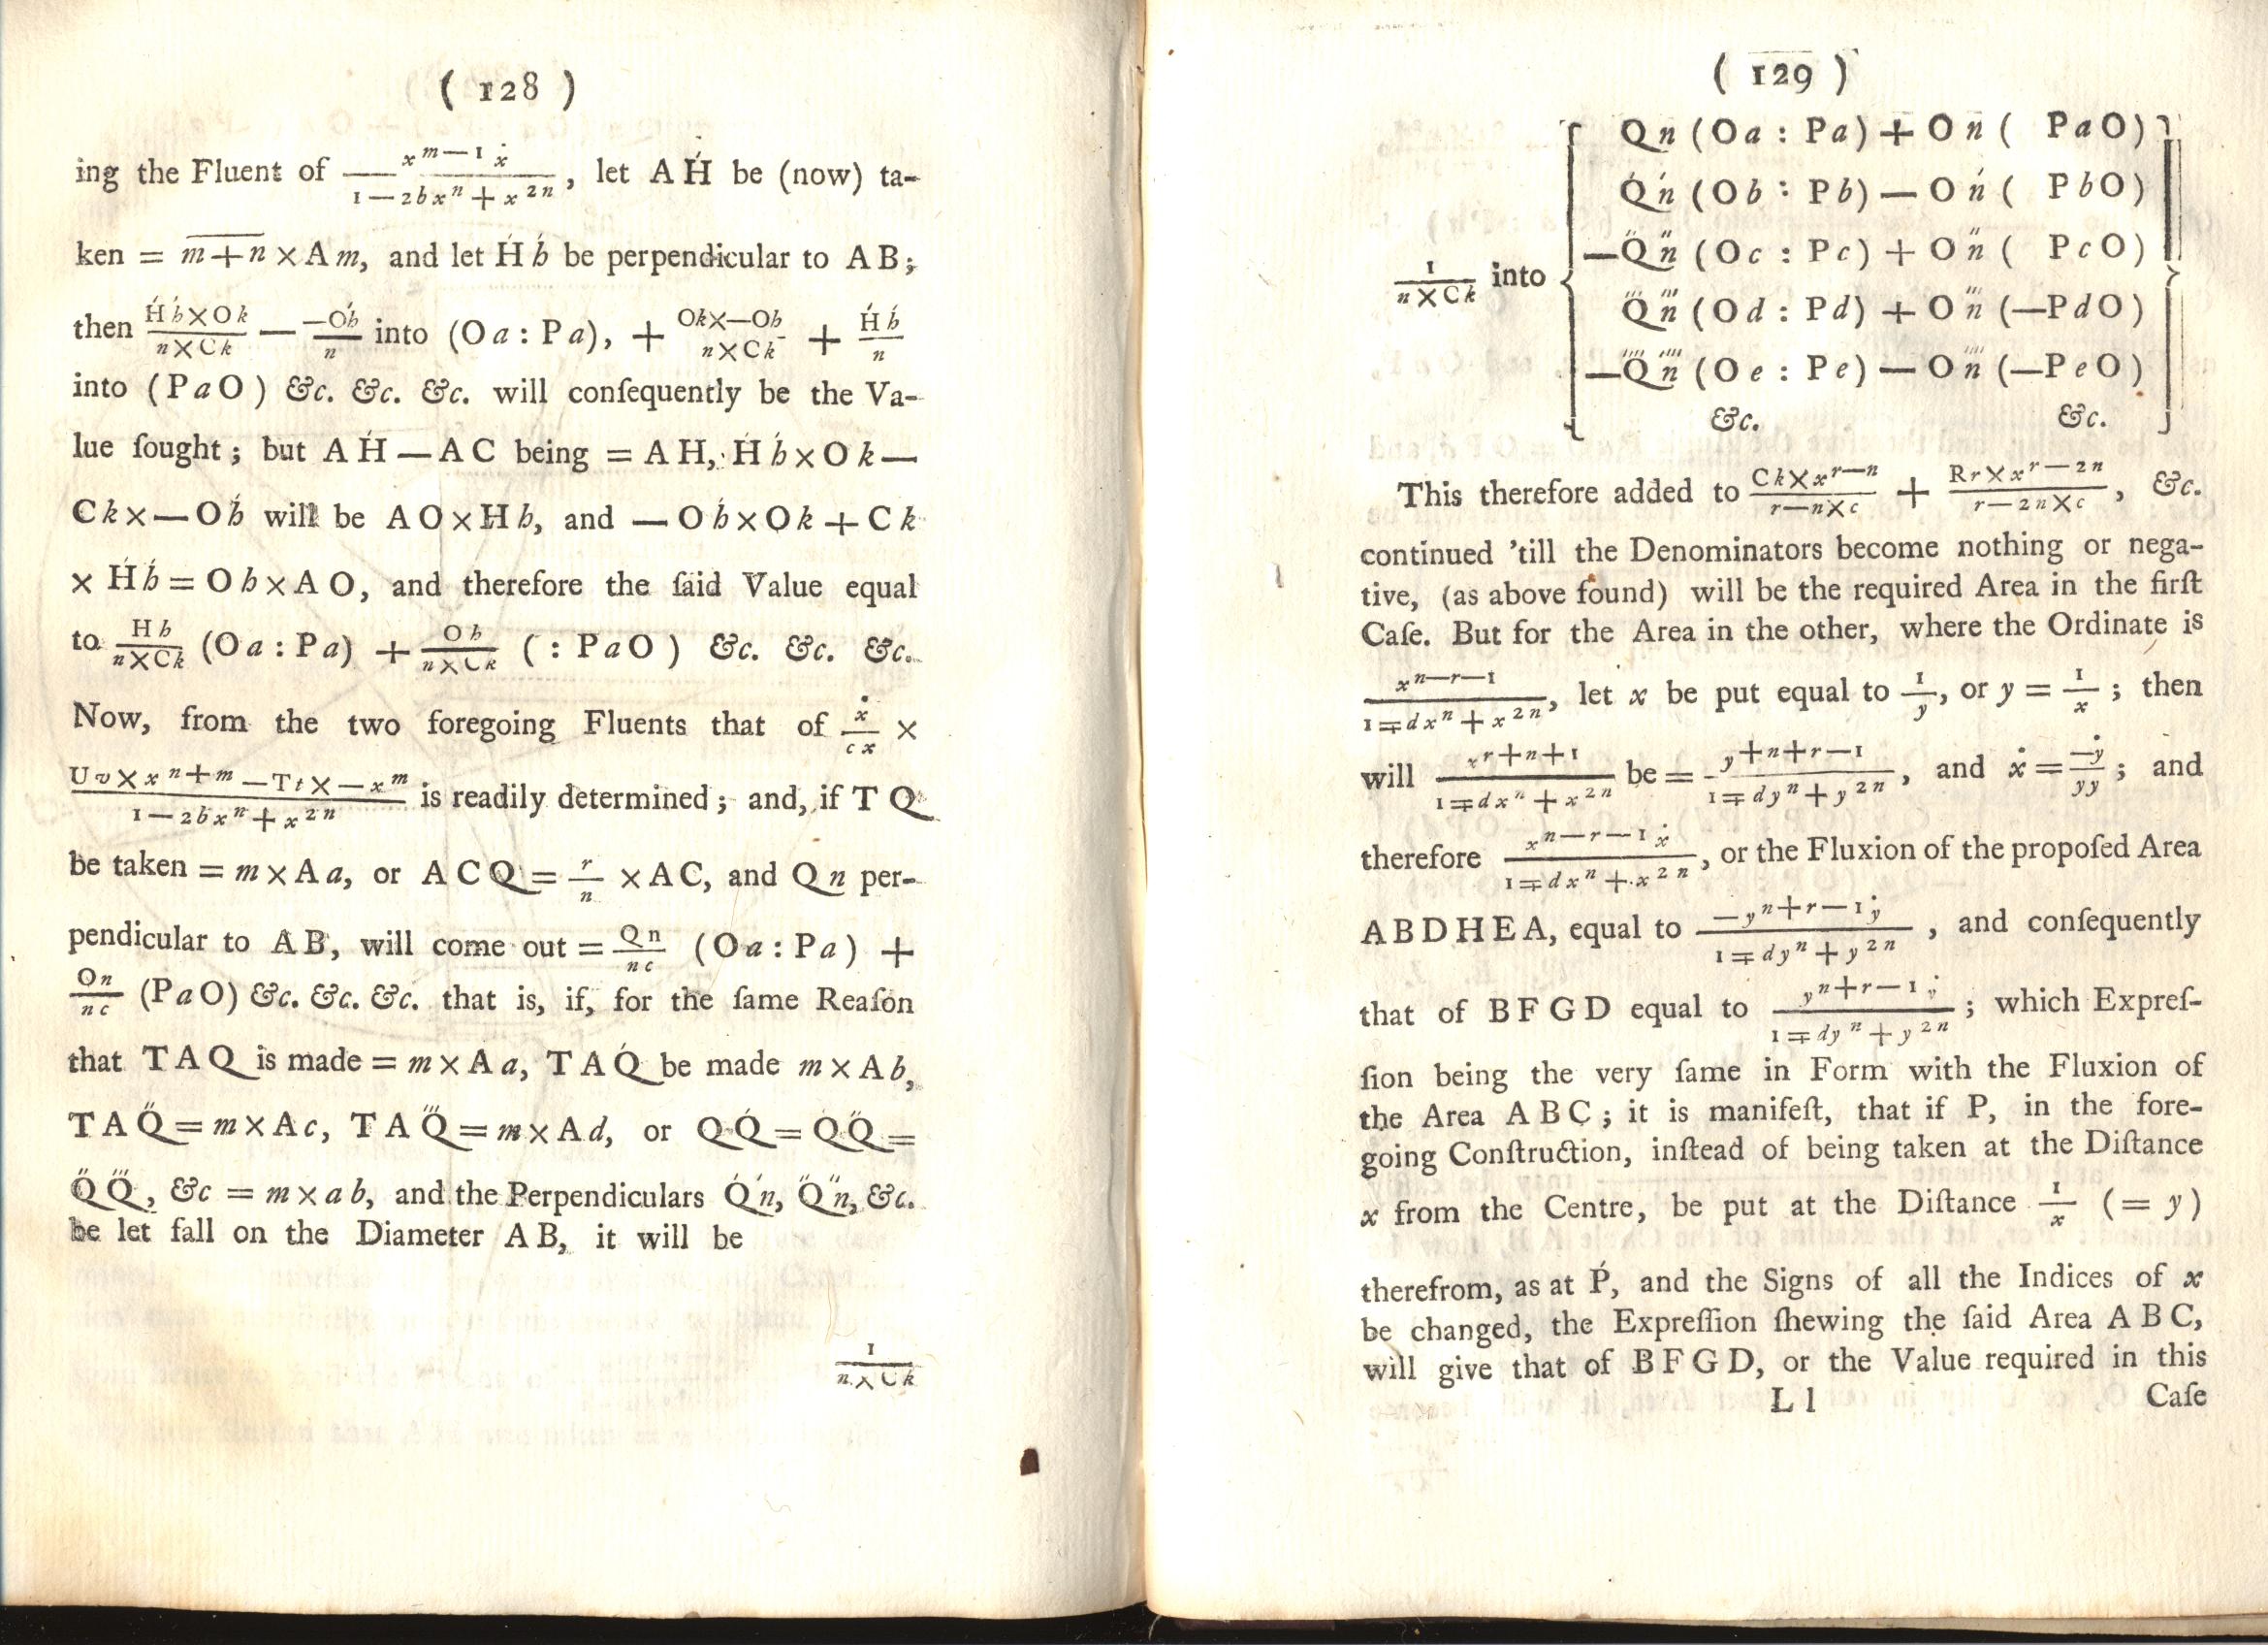 ( 128 )
ing the Fluent of x^{m—1} ẋ / 1—2bx^n + x^{2n}, let A H́ be (now) ta-
ken = \overline{m+n} × A m, and let H́ h́ be perpendicular to A B;
then H́h́×Ok / n×Ck — —Oh́ / n into (O a : P a), + Ok×—Oh / n×Ck + H́ h́ / n
into (P a O) &c. &c. &c. will conſequently be the Va-
lue ſought; but A H́ — A C being = A H, H́ h́ × O k —
C k × — O h́ will be A O × H h, and — O h́ × O k + C k
× H́ h́ = O h × A O, and therefore the ſaid Value equal
to H h / n×Ck (O a : P a) + O h / n×Ck ( : P a O ) &c. &c. &c.
Now, from the two foregoing Fluents that of ẋ / c x ×
U v × x^{n+m} — T t × — x^m / 1—2bx^n + x^{2n} is readily determined; and, if T Q
be taken = m × A a, or A C Q = r / n × A C, and Q n per-
pendicular to A B, will come out = Q n / n c (O a : P a) +
O n / n c (P a O) &c. &c. &c. that is, if, for the ſame Reaſon
that T A Q is made = m × A a, T A Q́ be made m × A b,
T A Q̈ = m × A c, T A Q⃛ = m × A d, or Q Q́ = Q́ Q̈ =
Q̈ Q⃛, &c = m × a b, and the Perpendiculars Q́ ń, Q̈ n̈, &c.
be let fall on the Diameter A B, it will be
1 / n × C k
( 129 )
1 / n × C k into
Q n (O a : P a) + O n ( P a O)
Q́ ń (O b : P b) — O ń ( P b O)
—Q̈ n̈ (O c : P c) + O n̈ ( P c O)
Q⃛ n⃛ (O d : P d) + O n⃛ (—P d O)
—Q⃜ n⃜ (O e : P e) — O n⃜ (—P e O)
&c. &c.
This therefore added to C k × x^{r—n} / r—n×c + R r × x^{r—2n} / r—2n×c, &c.
continued 'till the Denominators become nothing or nega-
tive, (as above found) will be the required Area in the firſt
Caſe. But for the Area in the other, where the Ordinate is
x^{n—r—1} / 1∓dx^n + x^{2n}, let x be put equal to 1 / y, or y = 1 / x; then
will x^{r+n+1} / 1∓dx^n + x^{2n} be = y^{+n+r—1} / 1∓dy^n + y^{2n}, and ẋ = —ẏ / yy; and
therefore x^{n—r—1} ẋ / 1∓dx^n + x^{2n}, or the Fluxion of the propoſed Area
A B D H E A, equal to —y^{n+r—1} ẏ / 1∓dy^n + y^{2n}, and conſequently
that of B F G D equal to y^{n+r—1} ẏ / 1∓dy^n + y^{2n}; which Expreſ-
ſion being the very ſame in Form with the Fluxion of
the Area A B C; it is manifeſt, that if P, in the fore-
going Conſtruction, inſtead of being taken at the Diſtance
x from the Centre, be put at the Diſtance 1 / x (= y)
therefrom, as at Ṕ, and the Signs of all the Indices of x
be changed, the Expreſſion ſhewing the ſaid Area A B C,
will give that of B F G D, or the Value required in this
L l Caſe